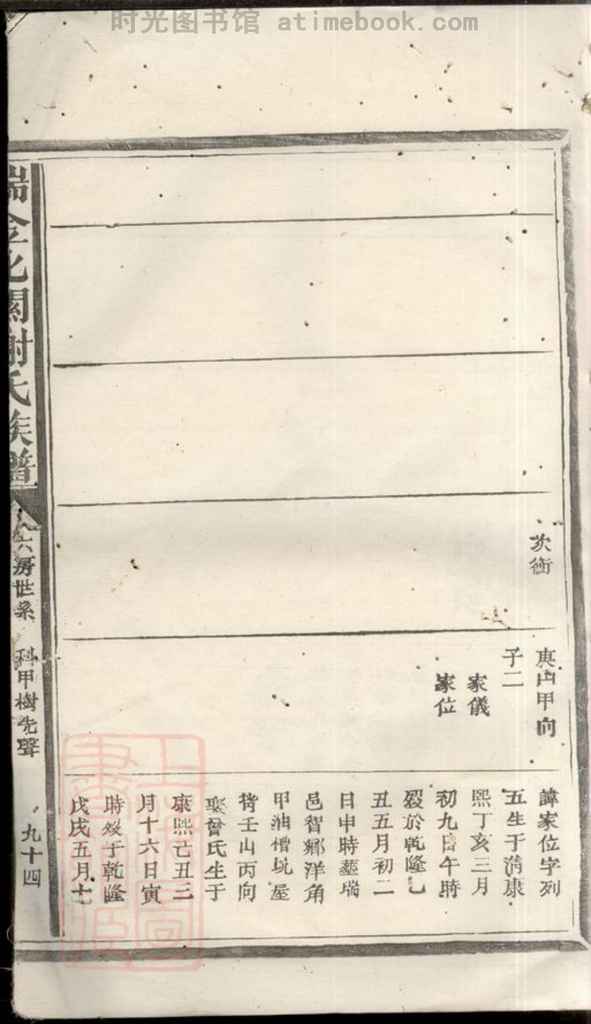 时光图书馆 atimebook.com
次衡
庚山甲向
子二
家儀
家位
諱家位字列
五生于清康
熙丁亥三月
初九日午時
歿於乾隆乙
丑五月初二
日申時塟瑞
邑智鄉洋角
甲油槽坑屋
背壬山丙向
娶曾氏生于
康熙己丑三
月十六日寅
時歿于乾隆
戊戌五月十
瑞金北關謝氏族譜
六房世系 科甲樹先聲 九十四